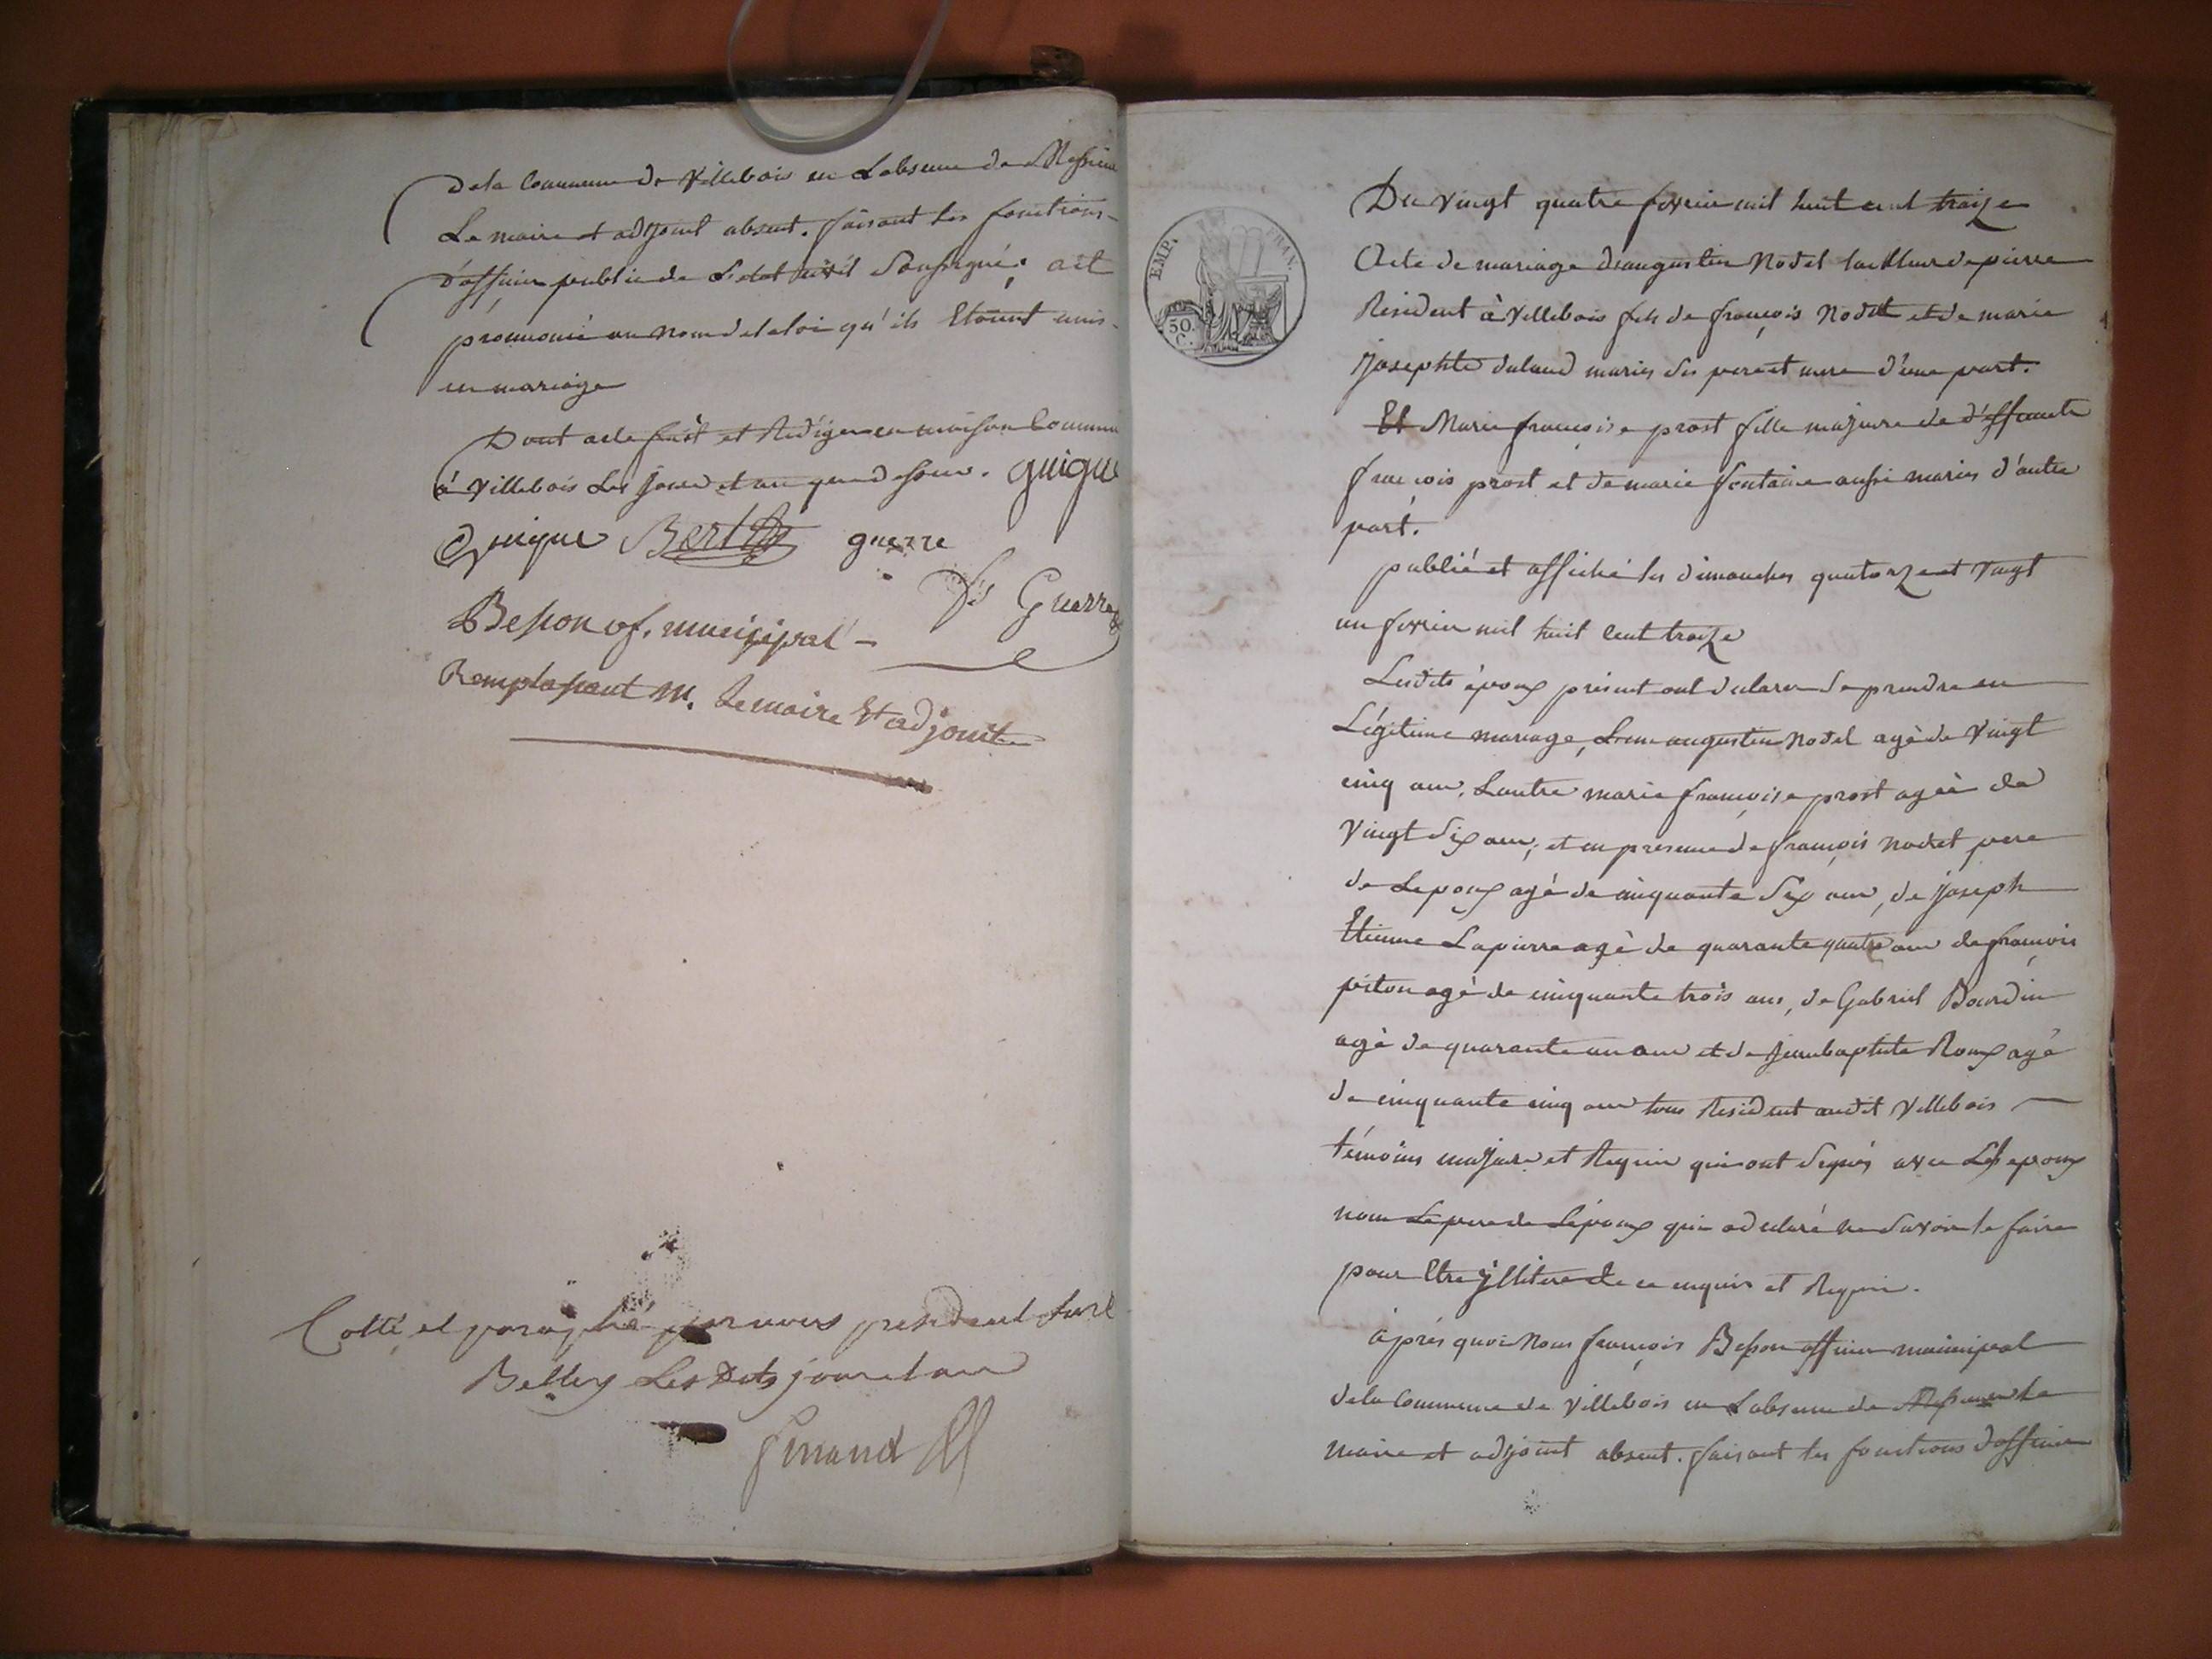 De la Commune de Villebois en Labsence de Messieurs
Le maire et adjoint absent. faisant les fonctions
d'officier public de L'etat civil Soussigné. ait
prononcé au nom de la loi qu'ils Etoient unis
en mariage
Dont acte fait et Rédiger en maison Commune
à Villebois Les jour et an que dessus. guigue
Guigue Berthet guerre
Besson of. municipal
fs Guerre
Remplassant M. Lemaire Et adjoint
Cotté et paraphé par nous president
Belley Les Dits jour et an
Du vingt quatre fevrier mil huit cent traize
Acte de mariage d'augustin Nodet tailleur de pierre
Resident à Villebois fils de françois Nodet et de marie
josephte maries ses pere et mere d'une part.
Et Marie françoise prost fille majeure de d'effuncte
françois prost et de marie fontaine aussi maries d'autre
part.
publié et affiché les dimanches quatorze et vingt
un fevrier mil huit cent traize
Lesdits époux présent ont declarer se prendre en
Légitime mariage, L'un augustin Nodet agé de vingt
cinq ans. Lautre marie françoise prost agée de
vingt six ans; et en presence de françois nodet pere
de Lepoux agé de cinquante six ans, de joseph
Etienne Lapierre agé de quarante quatre ans de françois
piton agé de cinquante trois ans, de Gabriel Bourdin
agé de quarante un ans et de jeanbaptiste Roux agé
de cinquante cinq ans tous Resident audit Villebois
témoins majeurs et Requis qui ont signés avec Les epoux
non Le pere de L'epoux qui a declaré ne savoir le faire
pour Etre jllitere de ce enquis et Requis.
après quoi Nous françois Besson officier municipal
de la Commune de Villebois en Labsence de Messieurs le
maire et adjoint absent. faisant les fonctions d'officier
EMP. FRAN.
50.
C.